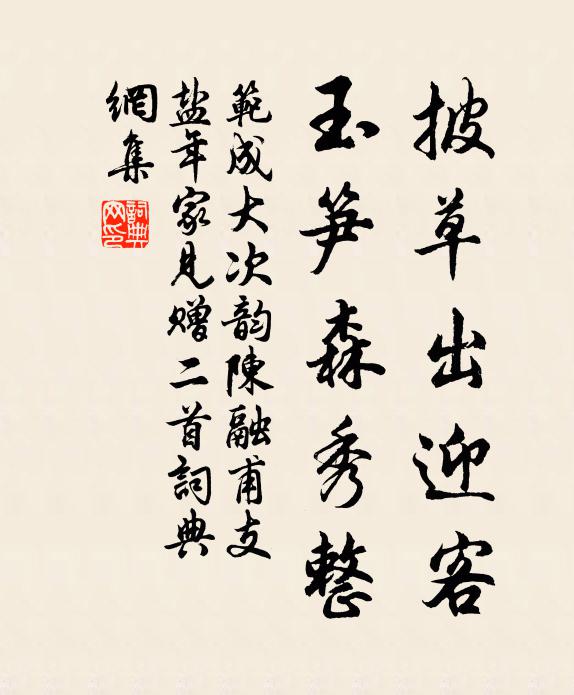 披草出迎客
玉笋森秀整
範成大次韵陳融甫支
盐年家见赠二首詞典
網集
詞典
网印